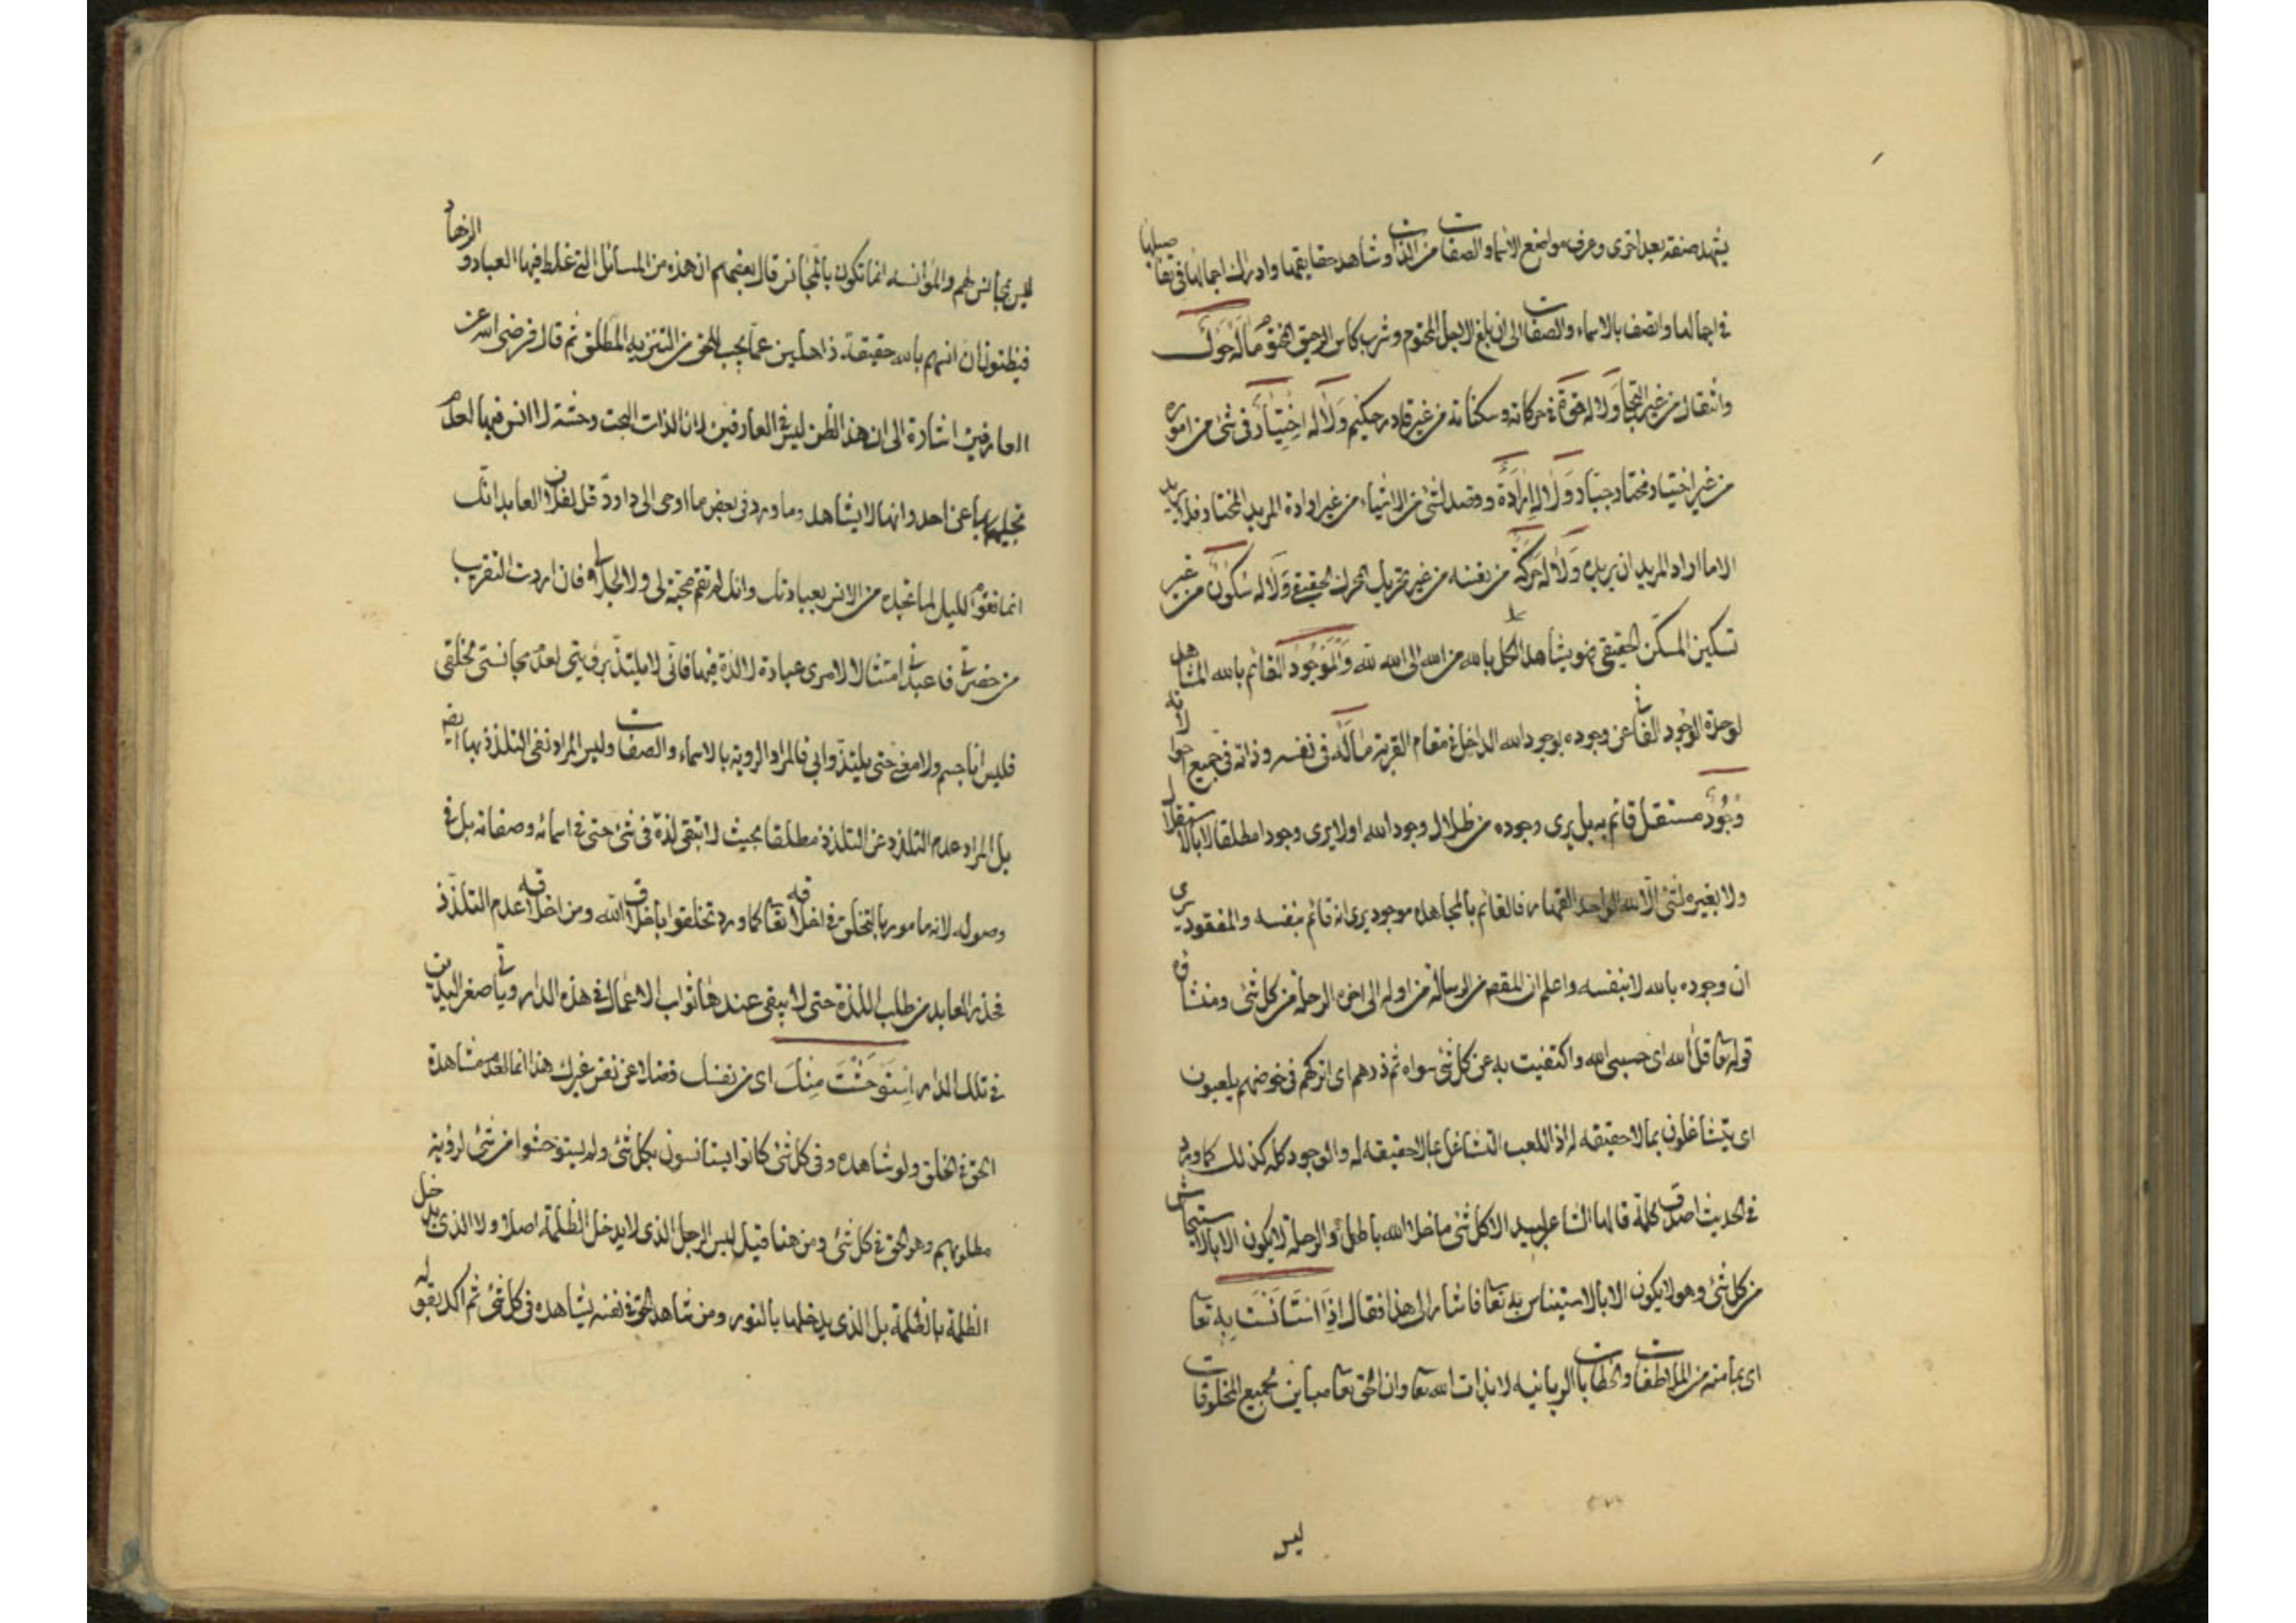 يشهد صنفه بعد اخرى وعرف مواضع الاسماء والصفات من الذات وشاهد حقايقها وادرك اجمالها في تفاصيلها
في اجمالها واتصف بالاسماء والصفات الى ان بلغ الاجل المحتوم وشرب كاس الرحيق المختوم مَالَهُ حَوْلٌ
وانتقال من غير التجاء وَلَا له قُوَّة في حركاته وسكناته من غير قادر حكيم وَلَا لَهُ اخْتِيَارٌ في شئ من اموره
من غير اختيار مختار جبار وَلَا لَهُ اِرَادَةٌ وقصد لشئ من الاشياء من غير ارادة المريد المختار فلا يريد
الا ما اراد المريد ان يريده وَلَا لَهُ حَرَكَةٌ من نفسه من غير تحريك المحرك الحقيقي وَلَا لَهُ سُكُونٌ من غير
تسكين المسكن الحقيقي فهو يشاهد الكل بالله من الله الى الله لله وَالْمَوْجُودُ القائم بالله المشاهد
لوحدة الوجود الفانى عن وجوده بوجود الله الداخل في مقام القربة مَالَهُ في نفسه وذاته في جميع احواله
وُجُودٌ مستقل قائم به بل يرى وجوده من ظلال وجود الله اولا يرى وجودا مطلقا لا بالاستقلال
ولا بغيره لشئ الا لله الواحد القهار فالقائم بالمجاهده موجود يرى انه قائم بنفسه والمفقود يرى
ان وجوده بالله لا بنفسه واعلم ان المقصد من الرسالة من اوله الى اخره الرحلة من كل شئ ومنشاؤه
قوله تعا قل الله اى حسبى الله واكتفيت به عن كل شئ سواه ثم ذرهم اى اتركهم في خوضهم يلعبون
اى يتشاغلون بما لا حقيقه له اذ اللعب التشاغل بما لا حقيقه له والوجود كله كذلك كما ورد
في الحديث اصدق كلمة قالها الشاعر لبيد الا كل شئ ما خلا الله باطل والرحلة لا يكون الا بالاستيحاش
من كل شئ وهو لا يكون الا بالاستيناس به تعا فاشار الى هذا فقال اِذَا اسْتَانَسْتَ بِهِ تعا
اى بما منه من الملاطفات والخطابات الربانيه لا بذات الله تعا وان الحق تعا مباين لجميع المخلوقات
ليس
ليس بمجانس لهم والمؤانسه انما تكون بالمجانس قال بعضهم ان هذه من المسائل التي غلط فيها العباد والزهاد
فيظنون ان انسهم بالله حقيقة ذاهلين عما يجب للحق من التنزيه المطلق ثم قال فرضى الله عن
العارفين اشارة الى ان هذا الظن ليس في العارفين لان الذات البحت وحشة لا انس فيها لعدم
تجليها عن احد وانها لا يشاهد وما ورد في بعض ما اوحى الى داود قل لفلان العابد انك
انما تقوم الليل لما تجده من الانس بعبادتك وانك لم تقم محبة لى ولا لجلالى فان اردت التقريب
من حضرتى فاعبدنى امتثالا لامرى عبادة لا لذة فيها فانى لا يلتذ برؤيتى لعدم مجانستى لخلقى
فليس انا جسم ولا معنى حتى يلتذوا بى فالمراد الروية بالاسماء والصفات وليس المراد نفى التلذذ بها ايضا
بل المراد عدم التلذذ عن التلذذ مطلقا بحيث لا تبقى لذة في شئ حتى في اسمائه وصفاته بل في
وصوله لانه مامور بالتخلق في اخلاقه تعا كما ورد تخلقوا باخلاق الله ومن اخلاقه عدم التلذذ
فحذر العابد من طلب اللذة حتى لا يبقى عندها ثواب الاعمال في هذه الدار ويأتى صفر اليدين
في تلك الدار اِسْتَوْحَشْتَ مِنْكَ اى من نفسك فضلا عن نفس غيرك هذا انما لعدم مشاهدة
الحق في الخلق ولو شاهده وفى كل شئ كانوا يستانسون بكل شئ ولم يستوحشوا من شئ لرؤية
مطلوبهم وهو الحق في كل شئ ومن هنا قيل ليس الرجل الذى لا يدخل الظلمة اصلا ولا الذى يدخل
الظلمة بالظلمة بل الذى يدخلها بالنور ومن شاهد الحق في نفسه يشاهده في كل شئ ثم اكد بقوله